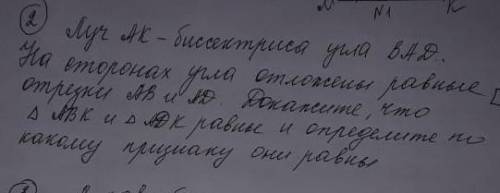 М N1 К
② Луч АК – биссектриса угла ВАD.
На сторонах угла отложены равные
отрезки АВ и АD. Докажите, что
△ АВК и △ АDК равны и определите по
какому признаку они равны